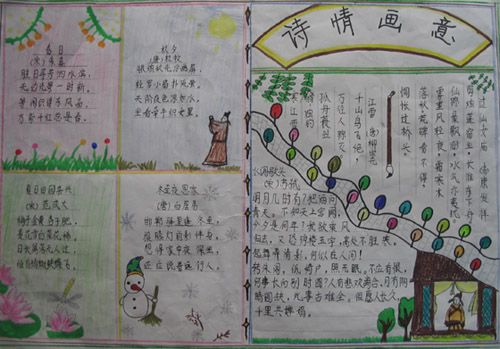 诗情画意
春日
(宋)朱熹
胜日寻芳泗水滨,
无边光景一时新。
等闲识得东风面,
万紫千红总是春。
秋夕
(唐)杜牧
银烛秋光冷画屏,
轻罗小扇扑流萤。
天阶夜色凉如水,
坐看牵牛织女星。
夏日田园杂兴
(宋)范成大
梅子金黄杏子肥,
麦花雪白菜花稀。
日长篱落无人过,
惟有蜻蜓蛱蝶飞。
冬至夜思家
(唐)白居易
邯郸驿里逢冬至,
抱膝灯前影伴身。
想得家中夜深坐,
还应说着远行人。
江雪 (唐)柳宗元
千山鸟飞绝,
万径人踪灭。
孤舟蓑笠翁,
独钓寒江雪。
水调歌头
(宋)苏轼
明月几时有?把酒问
青天。不知天上宫阙,
今夕是何年?我欲乘风
归去,又恐琼楼玉宇,高处不胜寒。
起舞弄清影,何似在人间!
转朱阁,低绮户,照无眠。不应有恨,
何事长向别时圆?人有悲欢离合,月有阴
晴圆缺,此事古难全。但愿人长久,
千里共婵娟。